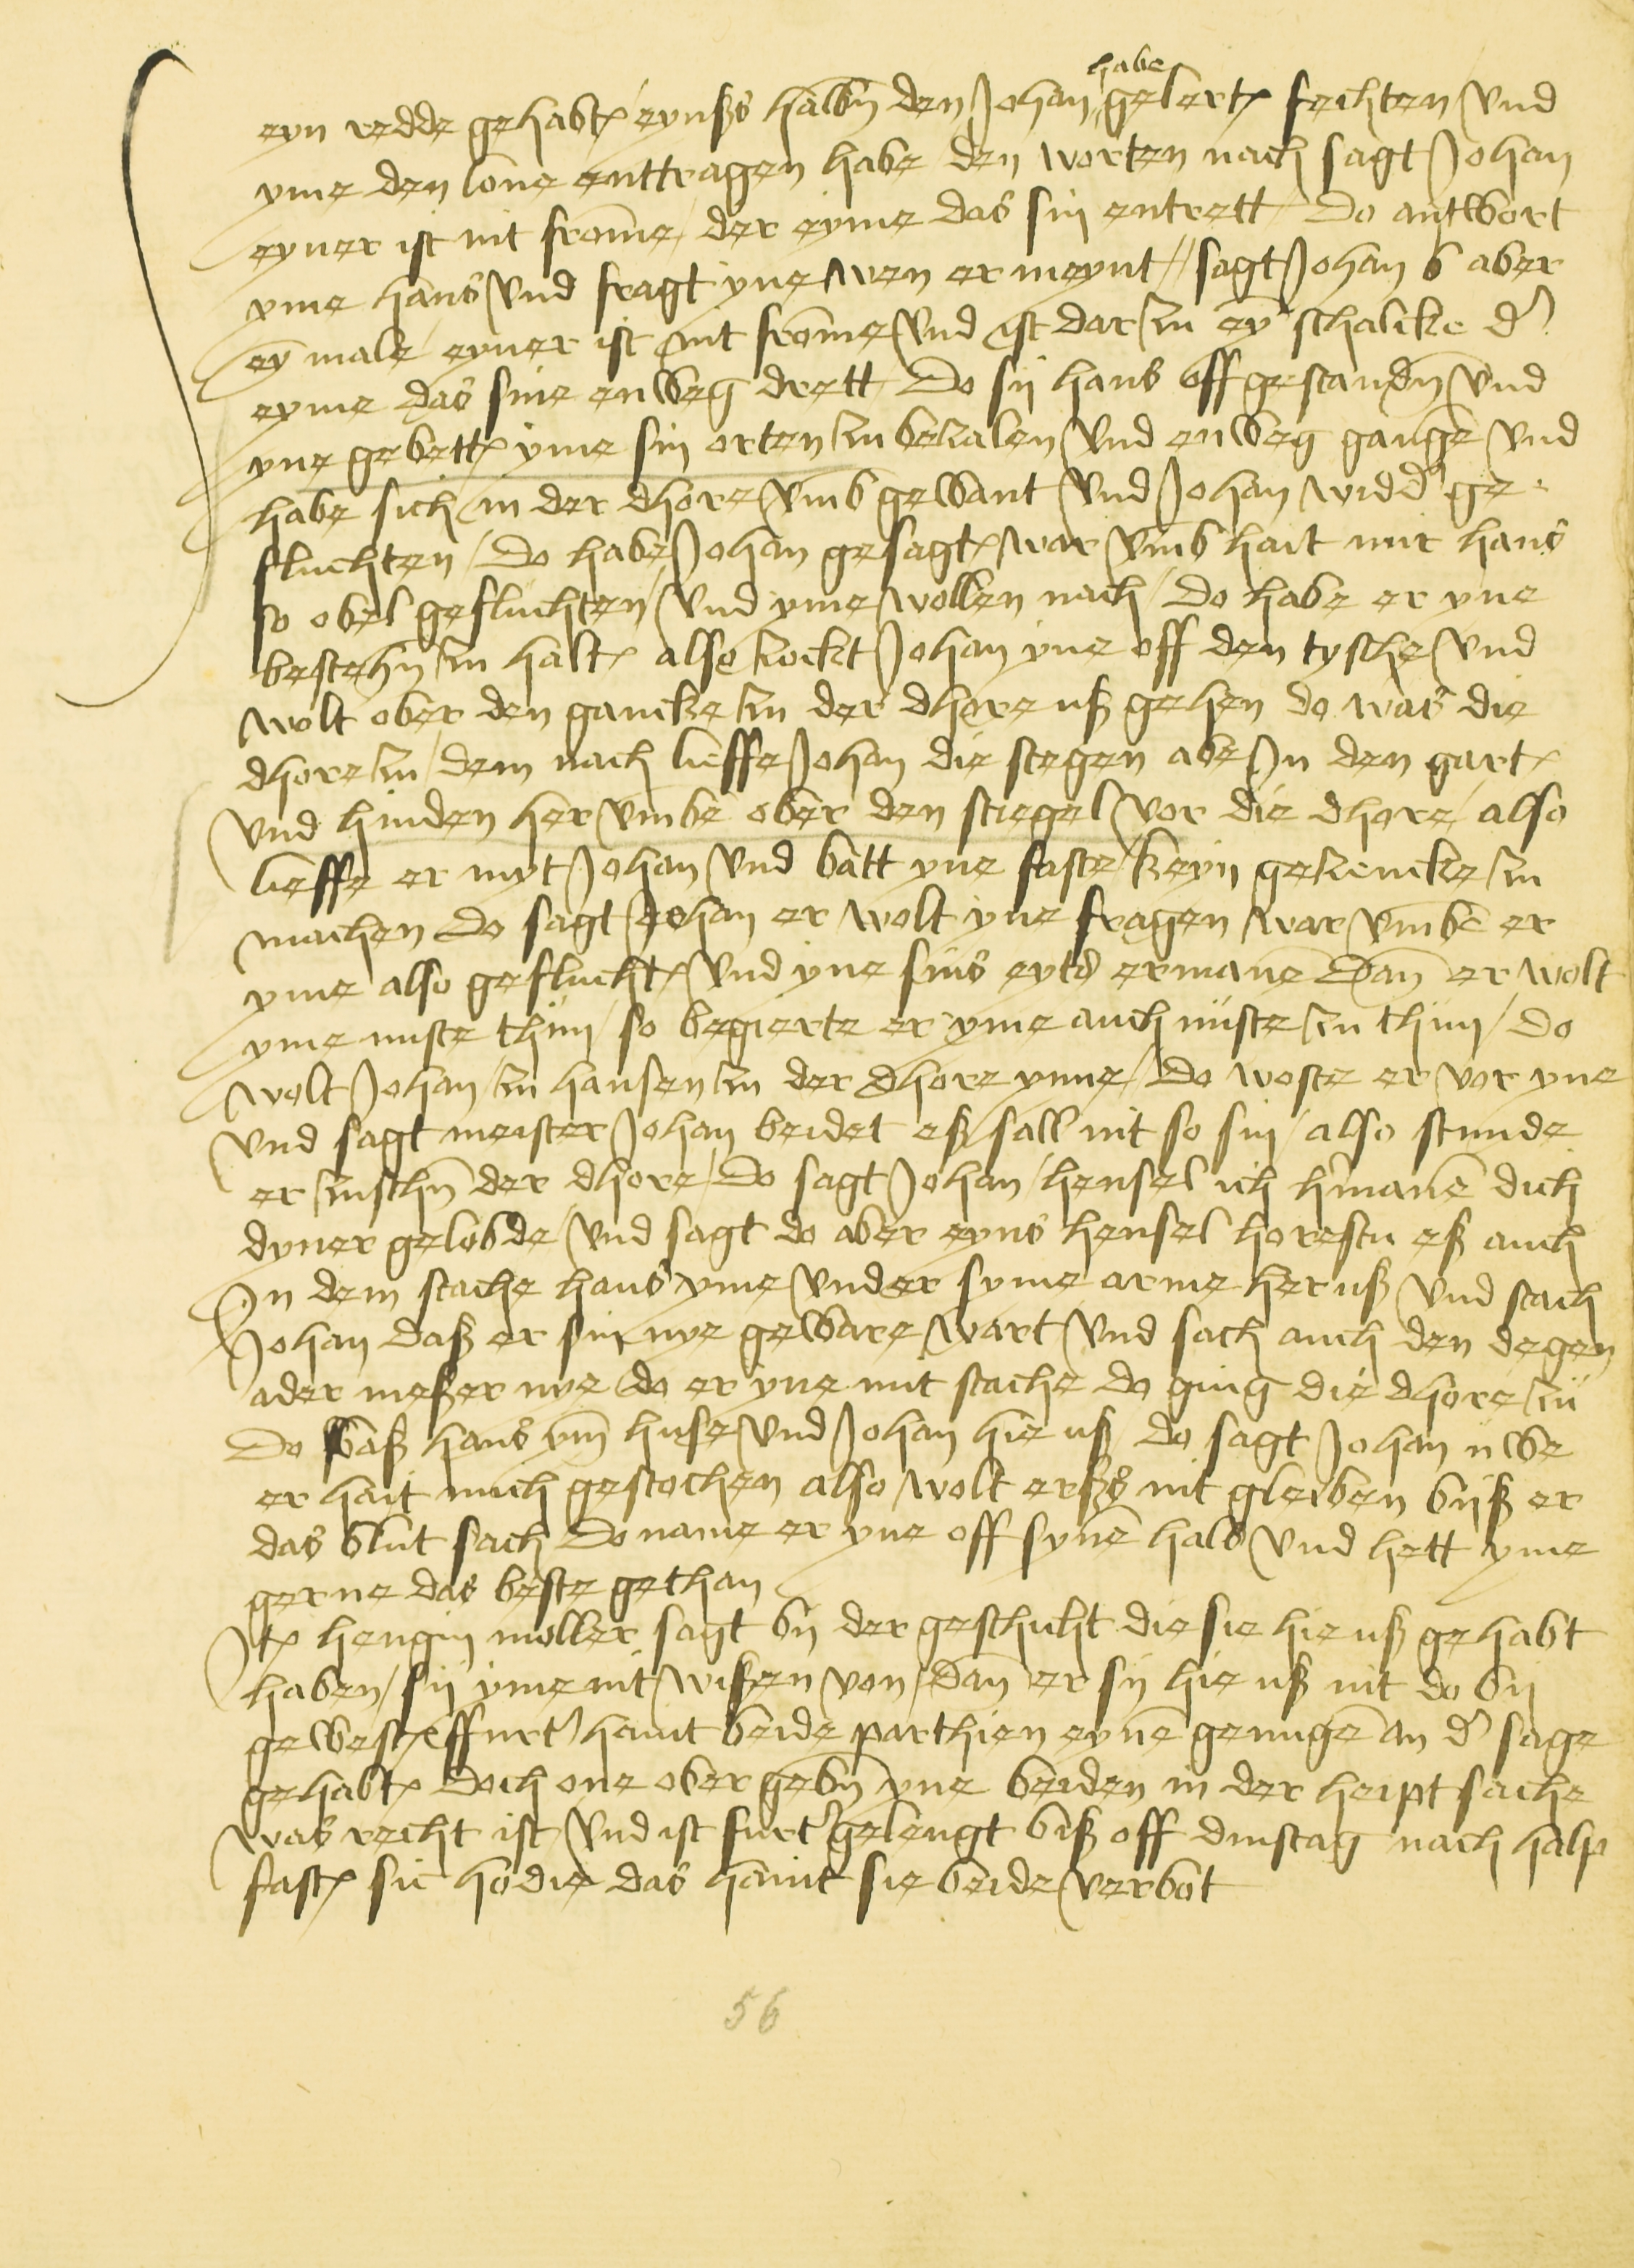 habe
eyn redde gehabt eynßs halbn den Johan gelert fechten und
yme den lone enttragen habe den worten nach sagt Johan
eyner ist nit frome / der eyme das sin entrett / Do antwort
yme hans und fragt yne wen er meynt // sagt Johan aber
ey male / eyner ist nit frome und ist dar zu ey schalcke der
eyme das sine enweg drett Do sij hans off gestandn und
yne gebett yme sin orten zu bezalen und enweg gange und
habe sich in der dhore umb gewant und Johan widder ge
fluchten / Do habe Johan gesagt war umb hait mir hans
so obel gefluchten / und yme wollen nach / Do habe er yne
bestehn zu halt also zockt Johan yne off den tysche und
wolt ober den gancke zu der dhore uß gehen do was die
dhore zu / dem nach lieffe Johan die stegen abe In den gart
und hinden her umbe ober den stiegel vor die dhore / also
lieffe er myt Johan und batt yne faste keyn gezencke zu
machen Do sagt Johan er wolt yne fragen war umbe er
yme also geflucht und yne sins eyds ermane Dan er wolt
yme niste thun / so begierte er yme auch nuste zu thun / Do
wolt Johan zu hansen zu der dhore ynne / Do woste er vor yne
und sagt meister Johan beidet eß sall nit so sin / also stunde
er zuschn der dhore / Do sagt Johan / hensel ich ermane dich
dyner gelobde / und sagt do aber eyns hensel horestu eß auch
In dem stache hans yme under syme arme her uß und stach
Johan daß er sin nye geware wart und sach auch den degen
ader meßer nye do er yne mit stache do ging die dhore zu
Do waß hans ym huse und Johan hie uß do sagt Johan uwe
er hait mich gestochen also wolt erßs nit gleiben biß er
das blut sach Do name er yne off syne hals und hett yme
gerne das beste gethan
It hengin moller sagt by der geschicht die sie hie uß gehabt
haben / sij yme nit wißen von / Dan er sij hie uß nit do bij
gewest ffurt haint beide parthien eyne genuge an der sage
gehabt Doch one obergebn yne beiden in der heiptsache
was recht ist und ist furt gelengt biß off dinstag nach halp
fast sic hodie das haint sie beide verbot
56